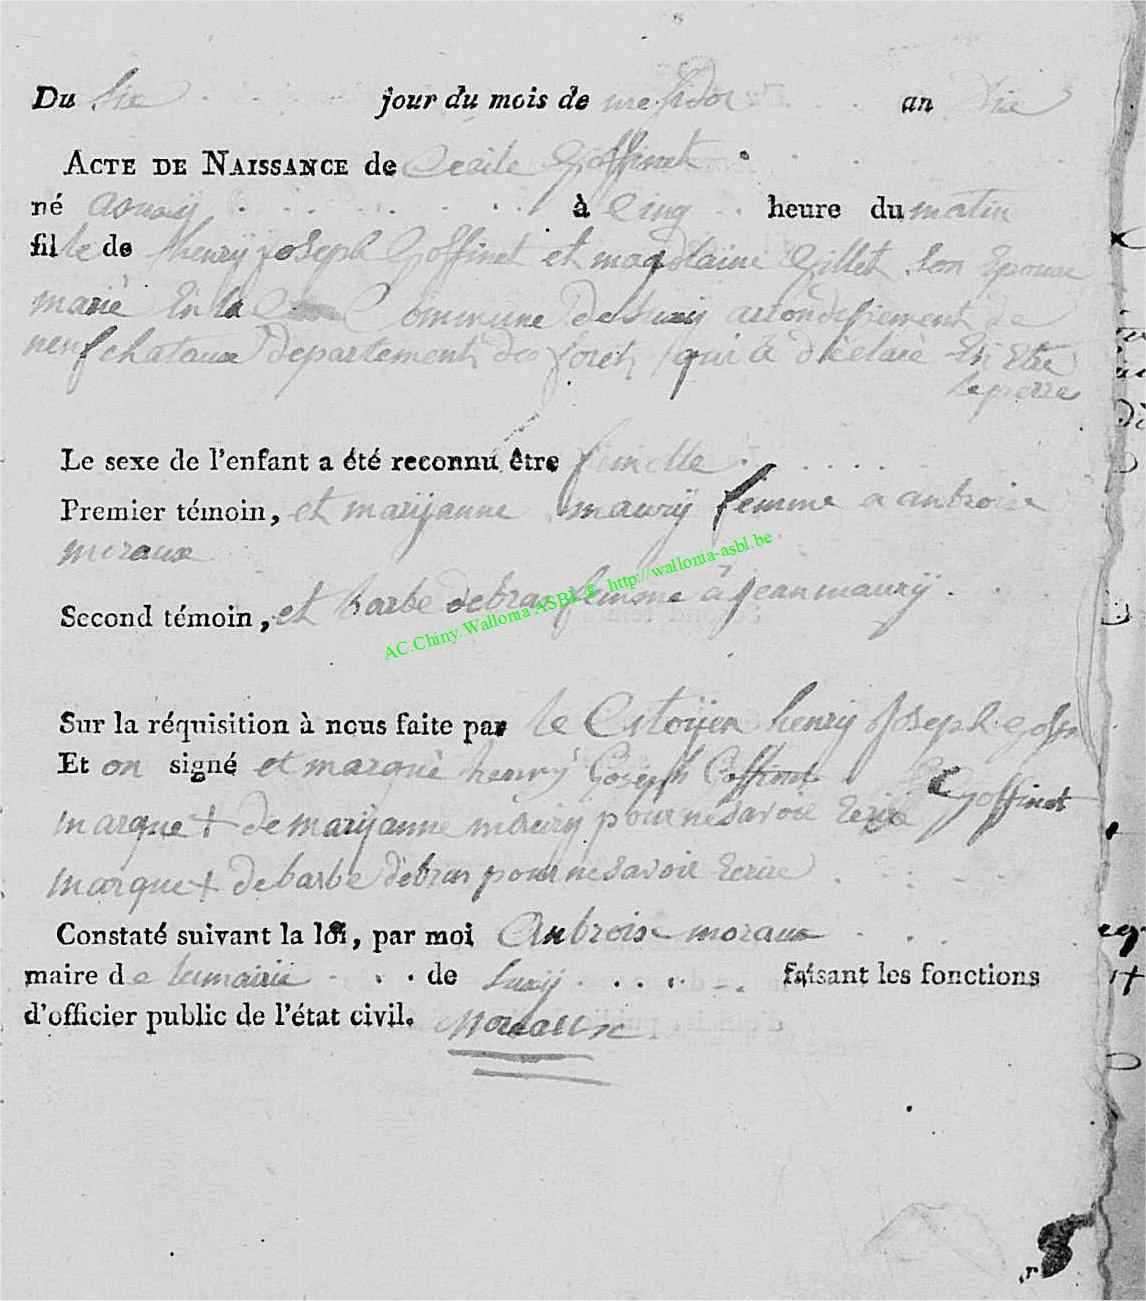 Du Six jour du mois de messidor an
ACTE DE NAISSANCE de Cecile Goffinet
né à Cinq heure du matin
fille de henry joseph Goffinet et magdlaine Gillet son Epouse
marié En la Commune de Suxy arrondissement de
neufchataux departement des forets qui a déclaré En Etre
le perre
Le sexe de l'enfant a été reconnu être femelle
Premier témoin, et maryanne maury femme a anbroise
moraux
Second témoin, et barbe debras femme à jean maury
AC.Chiny.Wallonia ASBL http://wallonia-asbl.be
Sur la réquisition à nous faite par le Citoyen henry Joseph goffin
Et on signé et marqué henry Goseph Goffinet
Goffinet
marque + de maryanne maury pour ne savoir
marque + de barbe debras pour ne savoir Ecrire
Constaté suivant la loi, par moi Anbroise moraux
maire de la mairie de Suxy faisant les fonctions
d'officier public de l'état civil. Moraux